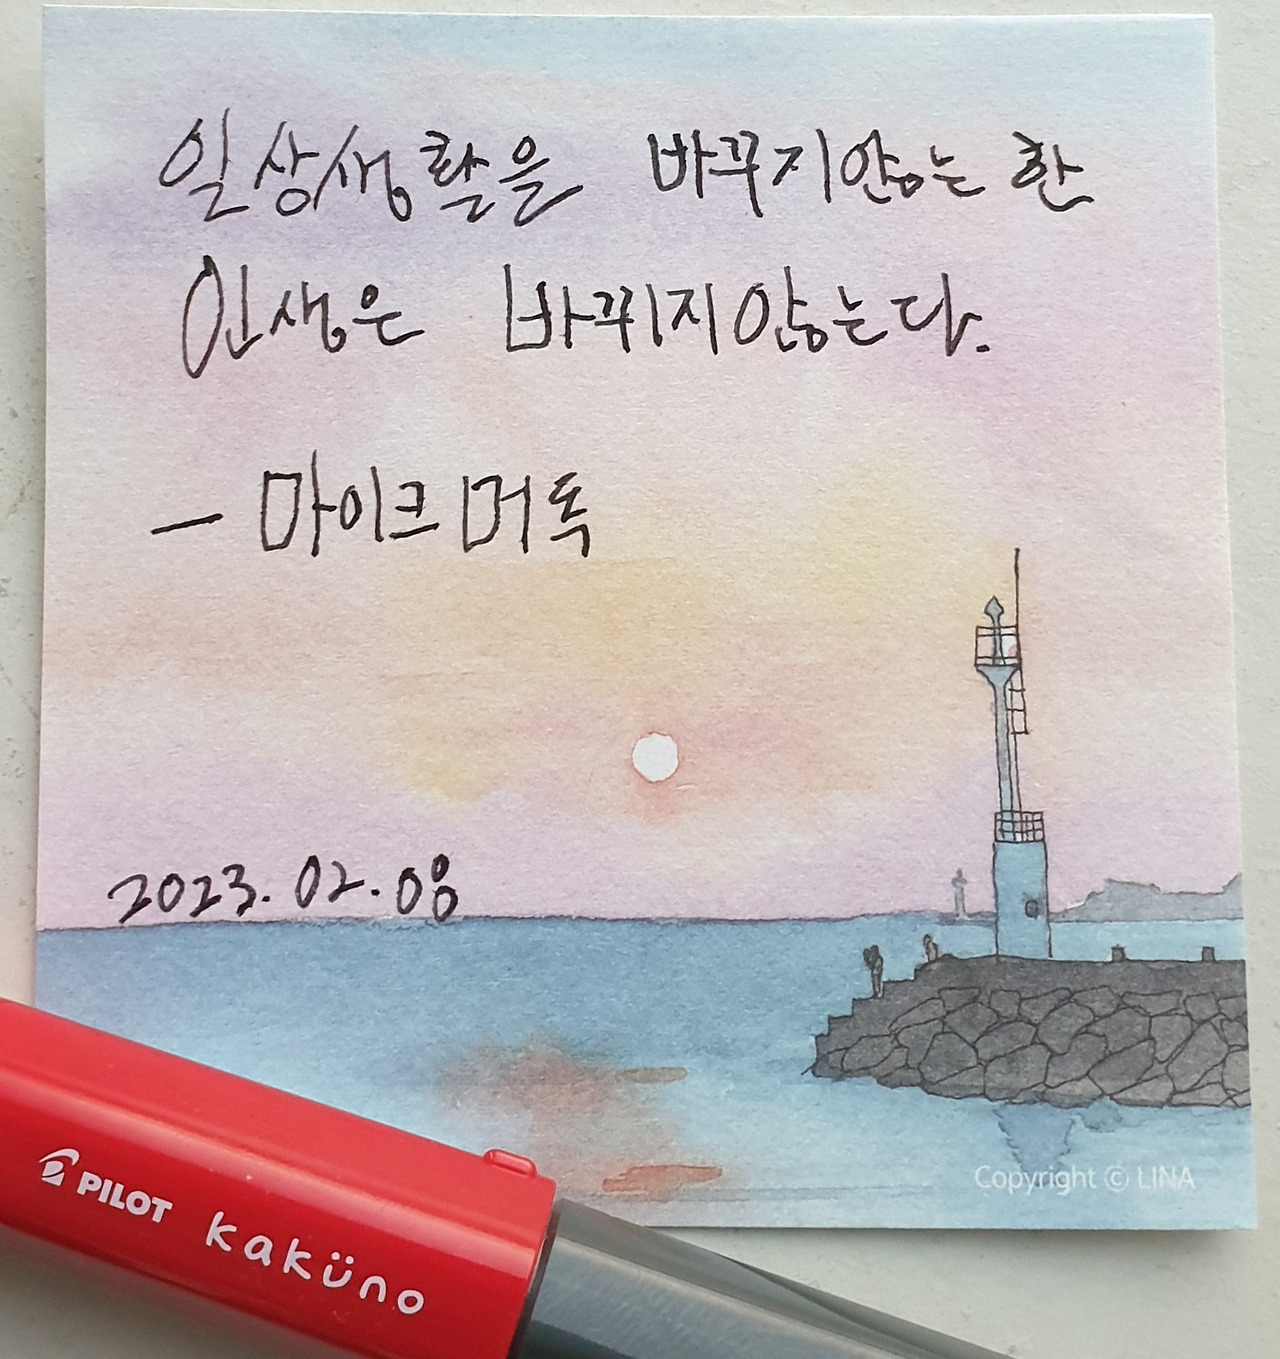 일상생활을 바꾸지않는 한
인생은 바뀌지않는다.
- 마이크 머독
2023. 02. 08
Copyright © LINA
PILOT kaküno